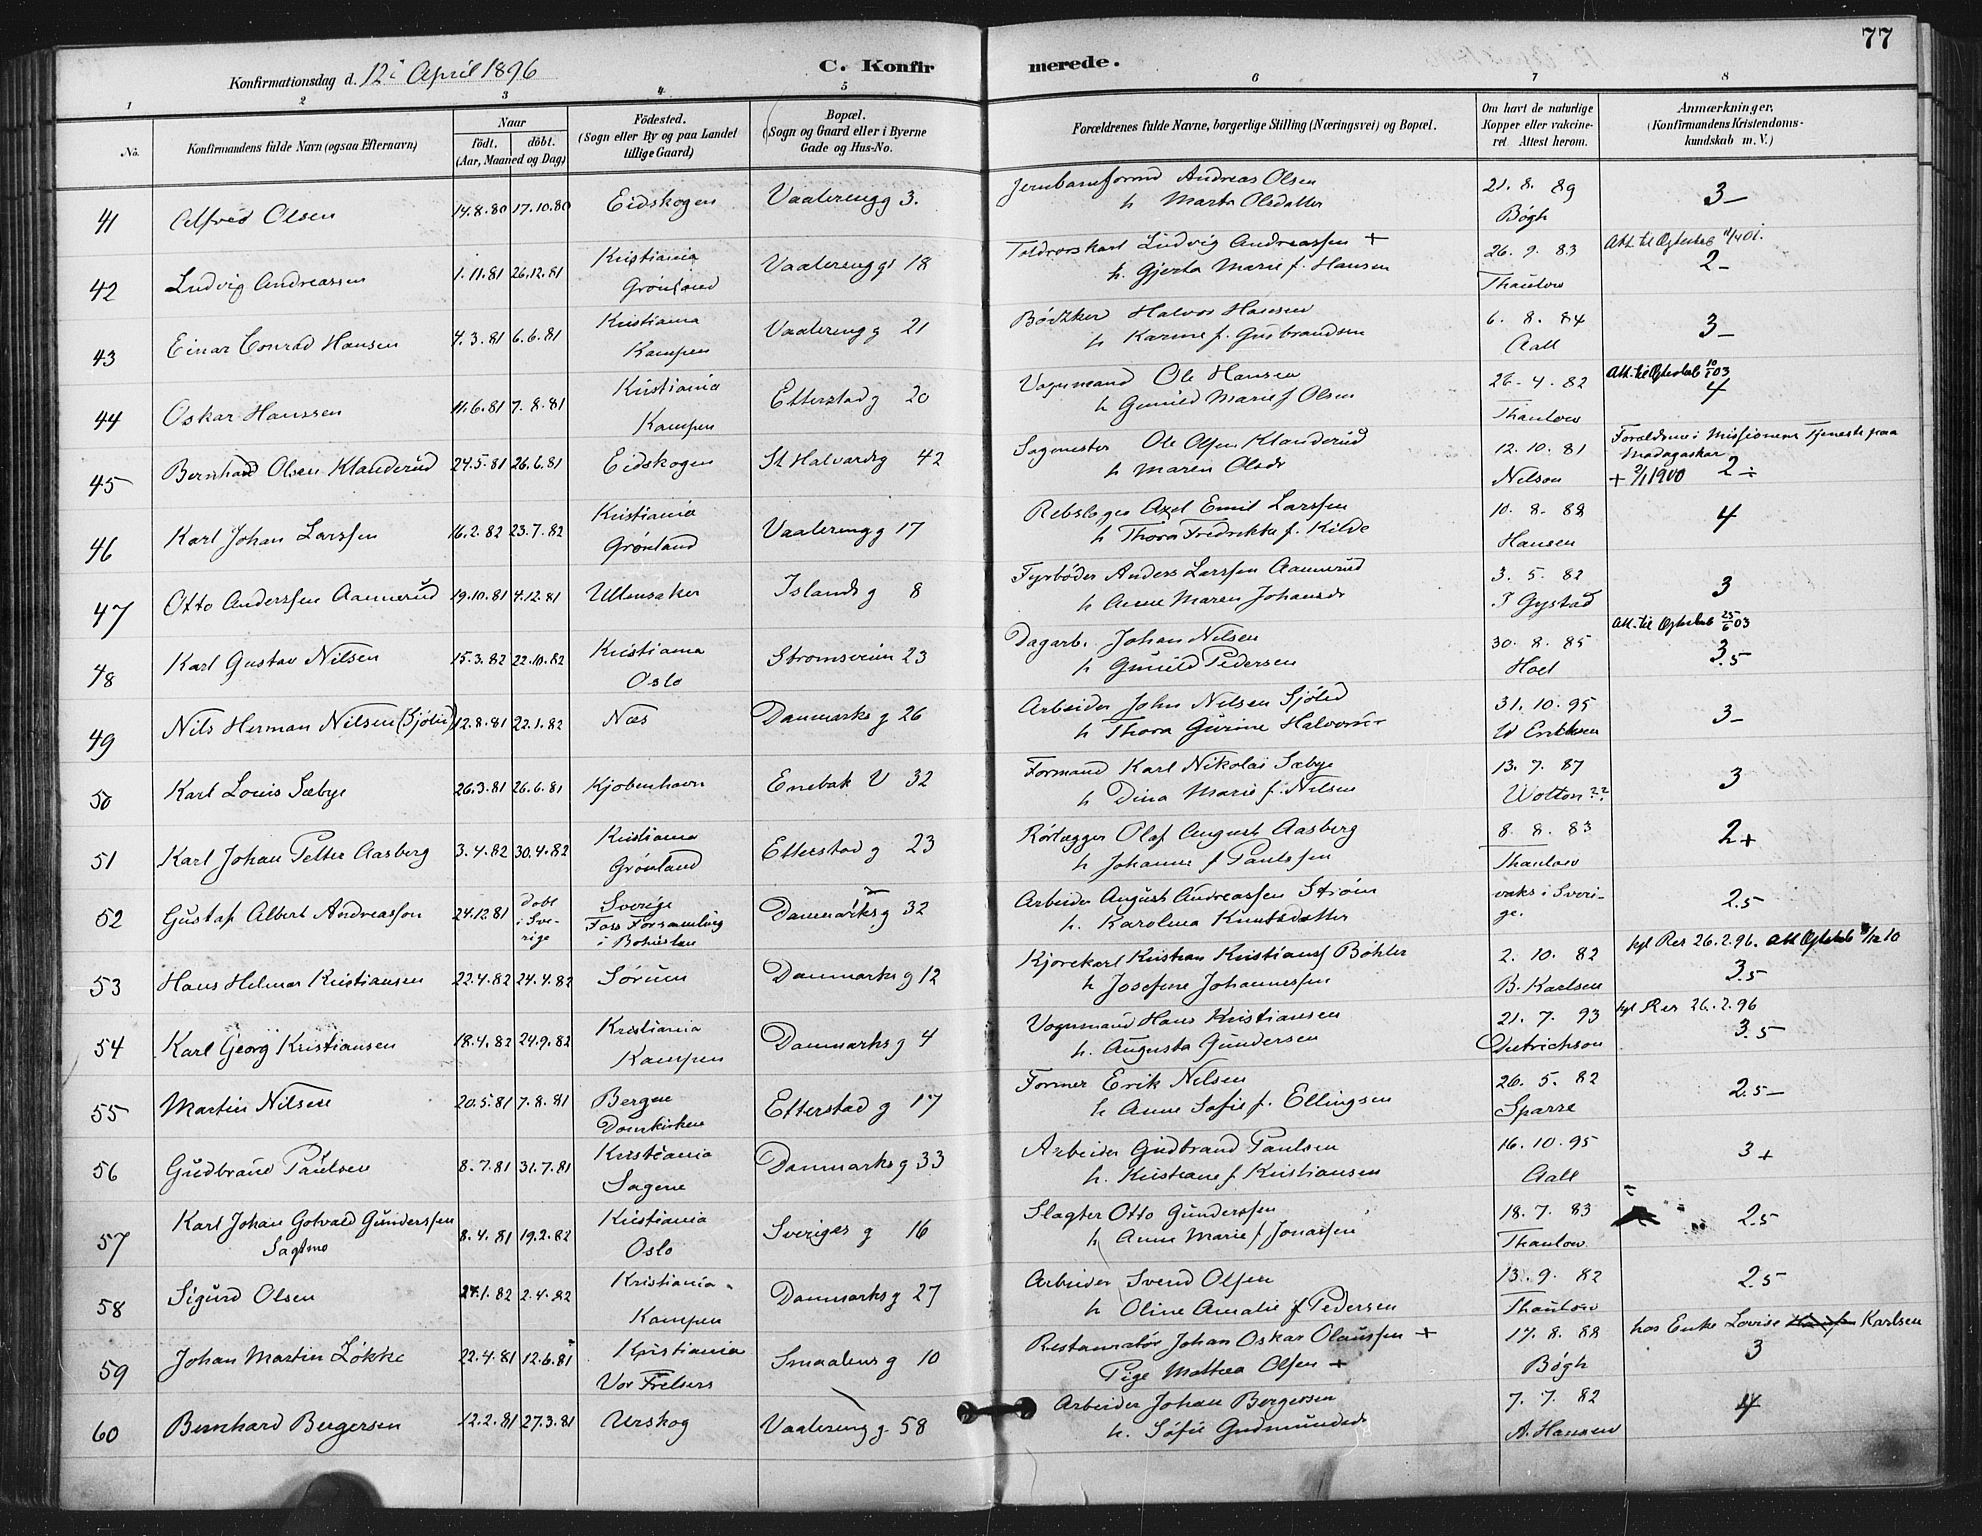 77
Konfirmationsdag d. 12 i April 1896
C. Konfirmerede.
1 2 3 4 5 6 7 8
No. Konfirmandens fulde Navn (ogsaa Efternavn) Naar födt. döbt. (Aar, Maaned og Dag) Födested. (Sogn eller By og paa Landet tillige Gaard) Bopæl. (Sogn og Gaard eller i Byerne Gade og Hus-No. Forældrenes fulde Navne, borgerlige Stilling (Næringsvei) og Bopæl. Om havt de naturlige Kopper eller vakcineret. Attest herom. Anmærkninger. (Konfirmandens Kristendomskundskab m. V.)
41 Alfred Olsen 14.8.80 17.10.80 Eidskogen Vaalerengg 3. Jernbaneformd Andreas Olsen
h Marta Olsdatter 21. 8. 89 Bøgh 3-
42 Ludvig Andreassen 1.11.81 26.12.81 Kristiania Grönland Vaalerengg 18 Toldrorskarl Ludvig Andreassen +
h. Gjerta Marie f. Hansen 26. 9. 83 Thaulow Att. til Ægteskab 11/4 01. 2-
43 Einar Conrad Hansen 4.3.81 6.6.81 Kristiania Kampen Vaalerengg 21 Bödker Halvor Hansen
h Karine f. Gudbrandsen 6. 8. 84 Aall 3-
44 Oskar Hanssen 11.6.81 7.8.81 Kristiania Kampen Etterstad g 20 Vognmand Ole Hansen
h Gunild Marie f Olsen 26-4. 82 Thaulow Att. til Ægteskab 10/5 03 4
45 Bernhard Olsen Klanderud 24.5.81 26.6.81 Eidskogen St Halvardsg 42 Sagmester Ole Olsen Klanderud
h Maren Olsdr 12. 10. 81 Nilson Forældrene i Missionens Tjeneste paa Madagaskar
+ 3/1 1900 2÷
46 Karl Johan Larssen 16.2.82 23.7.82 Kristiania Grönland Vaalerengg 17 Rebslager Axel Emil Larssen
h Thora Fredrikke f. Kilde 10. 8. 88 Hansen 4
47 Otto Anderssen Aamerud 19.10.81 4.12.81 Ullensaker Islands g 8 Fyrböder Anders Larssen Aamerud
h Anne Maren Johansdr 3. 5. 82 P Gystad 3
48 Karl Gustav Nilsen 15.3.82 22.10.82 Kristiania Oslo Strömsveien 23 Dagarb. Johan Nilsen
h Gunild Pedersen 30. 8. 85 Hoel Att. til Ægteskab 25/6 03 3.5
49 Nils Herman Nilsen (Sjölid) 12.8.81 22.1.82 Næs Danmarks g 26 Arbeider John Nilsen Sjölid
h Thora Gurine Halvorsdr 31. 10. 95 W Eriksen 3-
50 Karl Louis Sæbye 26.3.81 26.6.81 Kjöbenhavn Enebak V 32 Formand Karl Nikolai Sæbye
h Dina Marie f. Nilsen 13. 7. 87 Wolton ?? 3
51 Karl Johan Petter Aasberg 3.4.82 30.4.82 Kristiania Grönland Etterstad g 23 Rörlægger Olaf August Aasberg
h Johanne f Paulssen 8. 8. 83 Thaulow 2+
52 Gustaf Albert Andreasson 24.12.81 döbt i Sverige Sverige Foss Forsamling i Bohuslän Danmarksg 32 Arbeider August Andreassen Ström
h. Karolina Knutsdatter vaks i Sverige. 2.5
53 Hans Helmer Kristiansen 22.4.82 24.4.82 Sörum Danmarks g 12 Kjörekarl Kristian Kristians Böhler
h Josefine Johannessen 2. 10. 82 B. Karlsen kgl Res 26.2.96. Att Ægteskab 8/12 10 3.5
54 Karl Georg Kristiansen 18.4.82 24.9.82 Kristiania Kampen Danmarks g 4 Vognmand Hans Kristiansen
h. Augusta Gundersen 21. 7. 93 Dietrichson kgl Res 26.2.96 3.5
55 Martin Nilsen 20.5.81 7.8.81 Bergen Domkirken Etterstad g 17 Former Erik Nilsen
h Anne Sofie f. Ellingsen 26. 5. 82 Sparre 2.5-
56 Gudbrand Paulsen 8.7.81 31.7.81 Kristiania Sagene Danmarks g 33 Arbeider Gudbrand Paulsen
h. Kristiane f Kristiansen 16. 10. 95 Aall 3+
57 Karl Johan Gotvald Gunderssen Sagtmo 8.4.81 19.2.82 Kristiania Oslo Sveriges g 16 Slagter Otto Gunderssen
h Anne Marie f Jonassen 18. 7. 83 Thaulow 2.5
58 Sigurd Olsen 24.1.82 2.4.82 Kristiania Kampen Danmarksg 27 Arbeider Svend Olsen
h Oline Amalie f Pedersen 13. 9. 82 Thaulow 2.5
59 Johan Martin Lökke 22.4.81 12.6.81 Kristiania Vor Frelsers Smaalens g 10 Restauratör Johan Oskar Olaussen +
Pige Mathea Olsen + 17. 8. 88 Bøgh hos Enke Lovise Karlsen 3
60 Bernhard Bergersen 12.2.81 27.3.81 Urskog Vaalereng g. 58 Arbeider Johan Bergersen
h. Sofie Gudmundsdr 7. 7. 82 A. Hansen 4